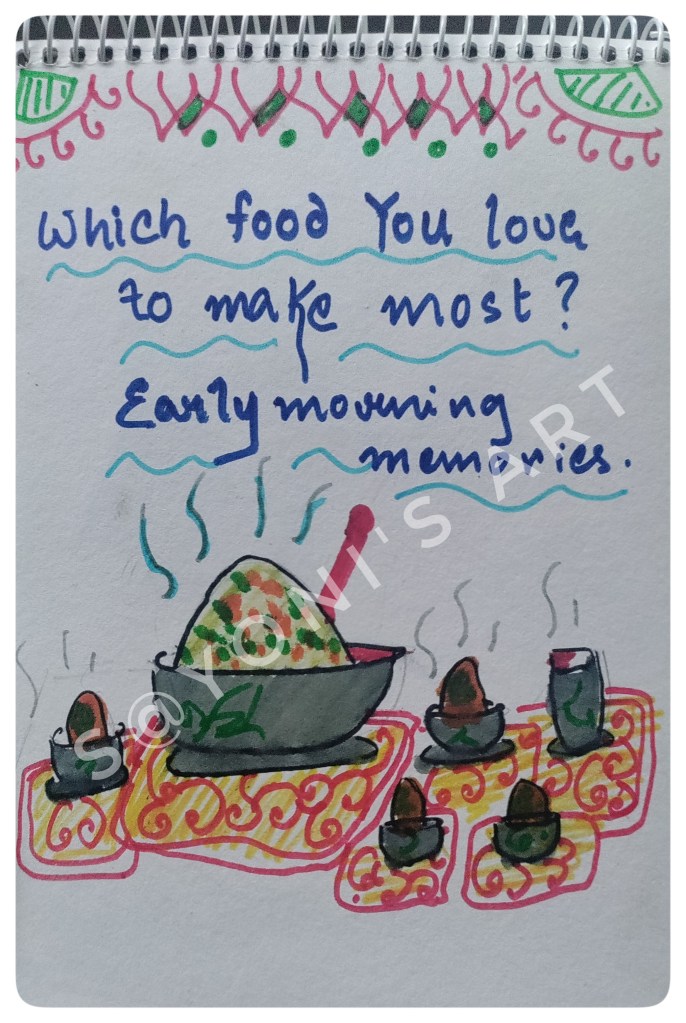 Which food You love
to make most?
Early morning
memories.
S@YONI'S ART